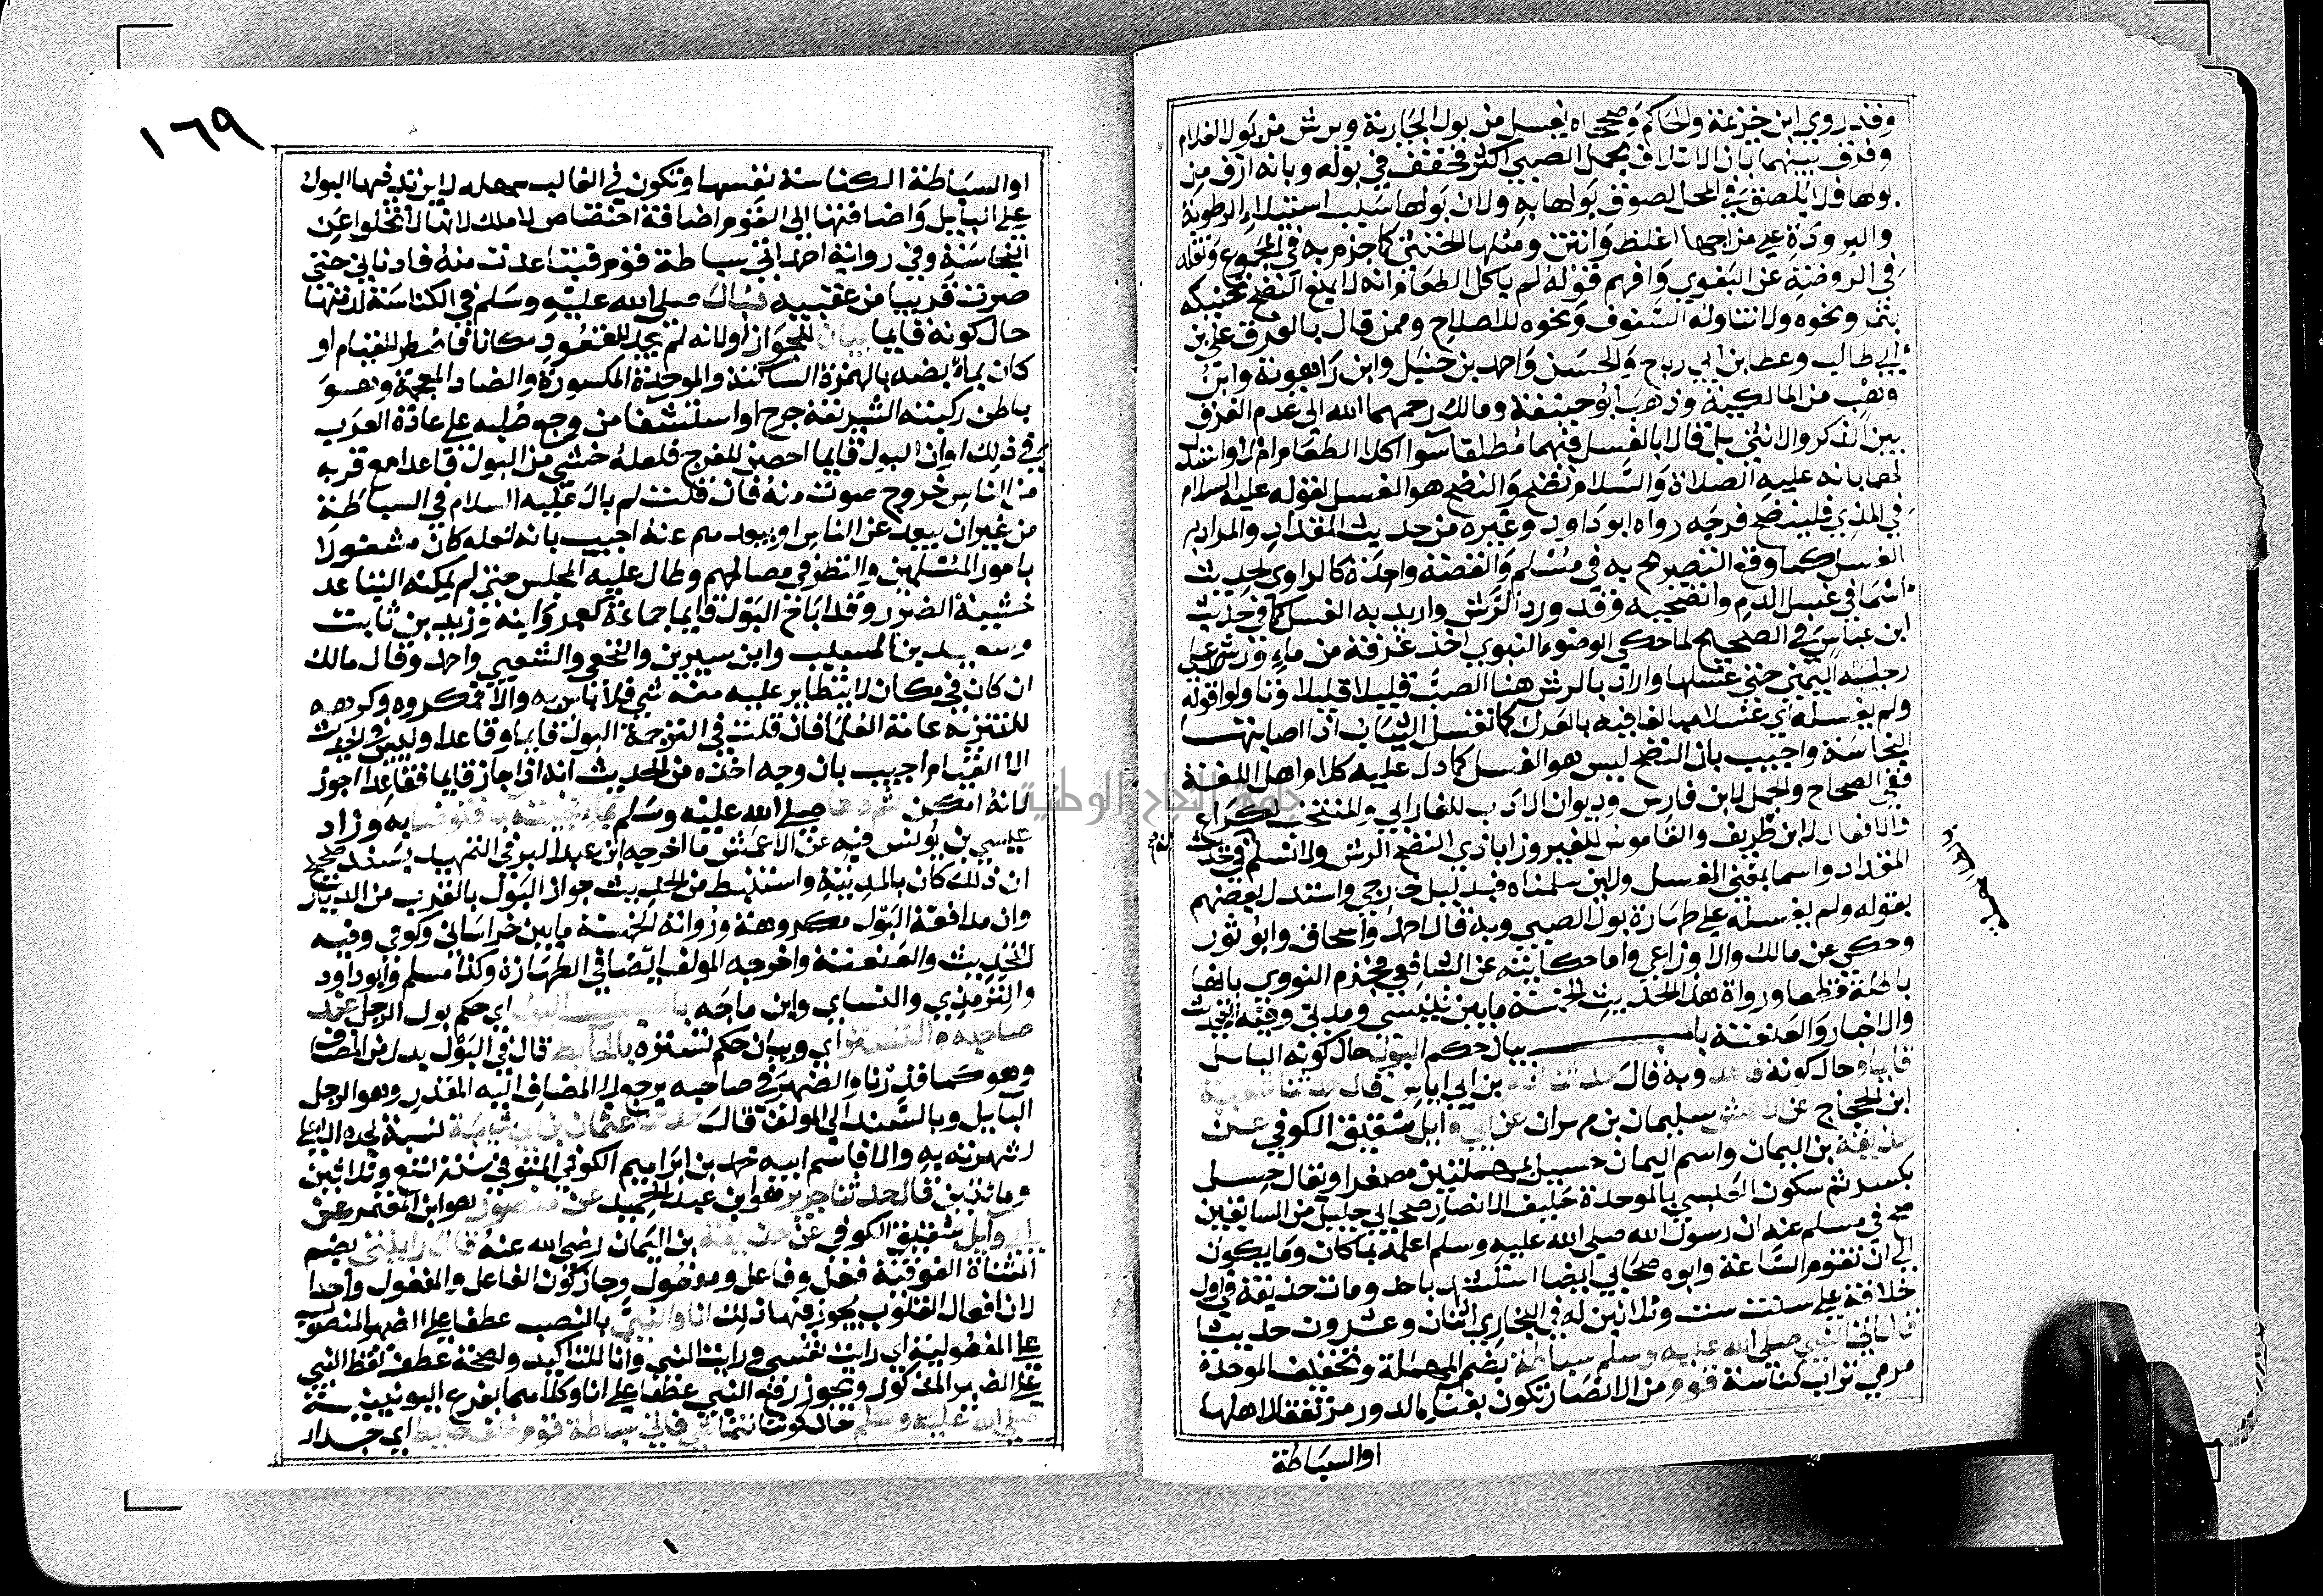 وقد روي ابن خزيمة والحاكم وصححاه يغسل من بول الجارية ويرش من بول الغلام
وفرق بينهما بان الائتلاف بحمل الصبي اكثر فخفف في بوله وبانه ارق من
بولها فلا يلصق بالمحل لصوق بولها به ولان بولها بسبب استيلاء الرطوبة
والبرودة علي مزاجها اغلظ وانتن ومثلها الخنثي كما جزم به في المجموع ونقله
في الروضة عن البغوي وافهم قوله لم ياكل الطعام انه لا يمنع النضح تحنيكه
بتمر ونحوه ولا تناوله السفوف ونحوه للاصلاح وممن قال بالفرق علي بن
ابي طالب وعطا بن ابي رباح والحسن واحمد بن حنبل وابن راهوية وابن
وهب من المالكية وذهب ابو حنيفة ومالك رحمهما الله الي عدم الفرق
بين الذكر والانثي بل قالا بالغسل فيهما مطلقا سوا اكلا الطعام ام لا واستدل
لهما بانه عليه الصلاة والسلام نضح والنضح هو الغسل لقوله عليه السلام
في المذي فلينضح فرجه رواه ابو داود وغيره من حديث المقداد والمراد به
الغسل كما وقع التصريح به في مسلم والقصة واحدة كالراوي لحديث
اسما في غسل الدم وانضحيه فقد ورد الرش واريد به الغسل كما في حديث
ابن عباس في الصحيح لما حكي الوضوء النبوي اخذ غرفة من ماء ورش علي
رجله اليمني حتي غسلها واراد بالرش هنا الصب قليلا قليلا وتاولوا قوله
ولم يغسله اي غسلا مبالغا فيه بالعرك كما تغسل الثياب اذا اصابتها
النجاسة واجيب بان النضح ليس هو الغسل كما دل عليه كلام اهل اللغة
ففي الصحاح والمجمل لابن فارس وديوان الادب للفارابي والمنتخب لكراع
والافعال لابن طريف والقاموس للفيروزابادي النضح الرش ولا نسلم انه في حديث
المقداد واسما بمعني الغسل ولين سلمناه فبدليل خارجي واستدل بعضهم
بقوله ولم يغسله علي طهارة بول الصبي وبه قال احمد واسحاق وابو ثور
وحكي عن مالك والاوزاعي واما حكايته عن الشافعي فجزم النووي بانها
باطلة قطعا ورواة هذا الحديث الخمسة ما بين تنيسي ومدني وفيه التحديث
والاخبار والعنعنة باب بيان حكم البول حال كونه البايل
قايما وحال كونه قاعدا وبه قال حدثنا ادم بن ابي اياس قال حدثنا شعبة
ابن الحجاج عن الاعمش سليمان بن مهران عن ابي وايل شقيق الكوفي عن
حذيفة بن اليمان واسم اليمان حسيل بمهملتين مصغرا ويقال حسل
بكسر ثم سكون العبسي بالموحدة حليف الانصار صحابي جليل من السابقين
صح في مسلم عنه ان رسول الله صلي الله عليه وسلم اعلمه بما كان وما يكون
الي ان تقوم الساعة وابوه صحابي ايضا استشهد باحد ومات حذيفة في اول
خلافة علي سنة ست وثلاثين له في البخاري اثنان وعشرون حديثا
قال اتي النبي صلي الله عليه وسلم سباطة بضم المهملة وتخفيف الموحدة
مرمي تراب كناسة قوم من الانصار تكون بفناء الدور مرتفقا لاهلها
او السباطة
١٦٩
او السباطة الكناسة نفسها وتكون في الغالب سهله لا يرتد فيها البول
علي البايل واضافتها الي القوم اضافة اختصاص لا ملك لانها لا تخلوا عن
النجاسة وفي رواية احمد اتي سباطة قوم فتباعدت منه فادناني حتي
صرت قريبا من عقبيه فبال صلي الله عليه وسلم في الكناسة لدمثها
حال كونه قايما بيان للجواز او لانه لم يجد للقعود مكانا فاضطر للقيام او
كان بمأبضه بالهمزة الساكنة والموحدة المكسورة والضاد المعجمة وهو
باطن ركبته الشريفة جرح او استشفا من وجع صلبه علي عادة العرب
في ذلك او ان البول قايما احصن للفرج فلعله خشي من البول قاعدا مع قربه
من الناس خروج صوت منه فان قلت لم بال عليه السلام في السباطة
من غير ان يبعد عن الناس او يبعدهم عنه اجيب بانه لعله كان مشغولا
بامور المسلمين والنظر في مصالحهم وطال عليه المجلس حتي لم يمكنه التباعد
خشية الضرر وقد اباح البول قايما جماعة كعمر وابنه وزيد بن ثابت
وسعيد بن المسيب وابن سيرين والنخعي والشعبي واحمد وقال مالك
ان كان في مكان لا يتطاير عليه منه شي فلا باس به والا فمكروه وكرهه
للتنزيه عامة العلما فان قلت في الترجمة البول قايما وقاعدا وليس في الحديث
الا القيام اجيب بان وجه اخذه من الحديث انه اذا جاز قايما فقاعدا اجوز
لانه امكن ثم دعا صلي الله عليه وسلم بماء فجئته بماء فتوضا به وزاد
عيسي بن يونس فيه عن الاعمش ما اخرجه ابن عبد البر في التمهيد بسند صحيح
ان ذلك كان بالمدينة واستنبط من الحديث جواز البول بالقرب من الديار
وان مدافعة البول مكروهة ورواته الخمسة ما بين خراساني وكوفي وفيه
التحديث والعنعنة واخرجه المولف ايضا في الطهارة وكذا مسلم وابو داود
والترمذي والنساي وابن ماجه باب البول اي حكم بول الرجل عند
صاحبه والتستر اي وبيان حكم تستره بالحايط قال في البول بدل من المضاف
وهو كما قدرناه والضمير في صاحبه يرجع الي المضاف اليه المقدر وهو الرجل
البايل وبالسند الي المولف قال حدثنا عثمان بن ابي شيبة نسبة لجده الاعلي
لشهرته به والا فاسم ابيه محمد بن ابراهيم الكوفي المتوفي سنة تسع وثلاثين
ومائتين قال حدثنا جرير هو ابن عبد الحميد عن منصور هو ابن المعتمر عن
ابي وايل شقيق الكوفي عن حذيفة بن اليمان رضي الله عنه قال رايتني بضم
المثناة الفوقية فعل وفاعل ومفعول وجاز كون الفاعل والمفعول واحدا
لان افعال القلوب يجوز فيها ذلك انا والنبي بالنصب عطفا علي الضمير المنصوب
علي المفعولية اي رايت نفسي ورايت النبي وانا للتاكيد ولصحة عطف لفظ النبي
علي الضمير المذكور ويجوز رفع النبي عطفا علي انا وكلاهما بفرع اليونينية
صلي الله عليه وسلم حال كوننا نتماشي فاتي سباطة قوم خلف حايط اي جدار